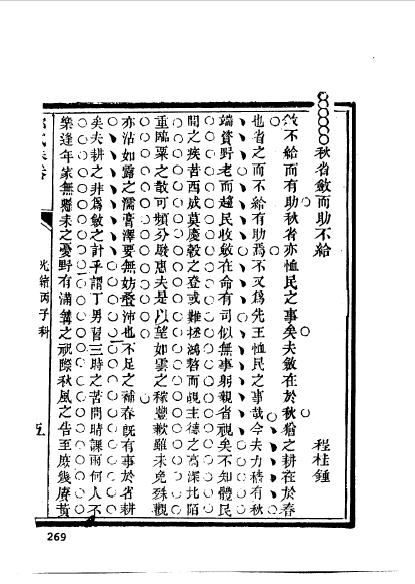 秋省斂而助不給
程桂鍾
斂不給而有助秋省亦恤民之事矣夫斂在於秋猶之耕在於春
也省之而不給有助焉不又為先王恤民之事哉今夫力穡有秋
端資野老而趨民收斂在命有司似無事躬親省視矣不知體民
間之疾苦西成莫慶穀之登或難拯鴻嗸而覘主德之高深北陌
重臨粟之散可頻分惠夫是以望如雲之稼豐歉雖未免殊觀
亦沾如露之濡膏澤要無妨叠沛也不足之補春既有事於省耕
矣夫耕之非為斂之計乎謂丁男習三時之苦問晴課雨何人不
樂逢年家無懸耒之憂野有滿篝之祝際秋風之告至庶幾賡黃
光緒丙子科
五
269